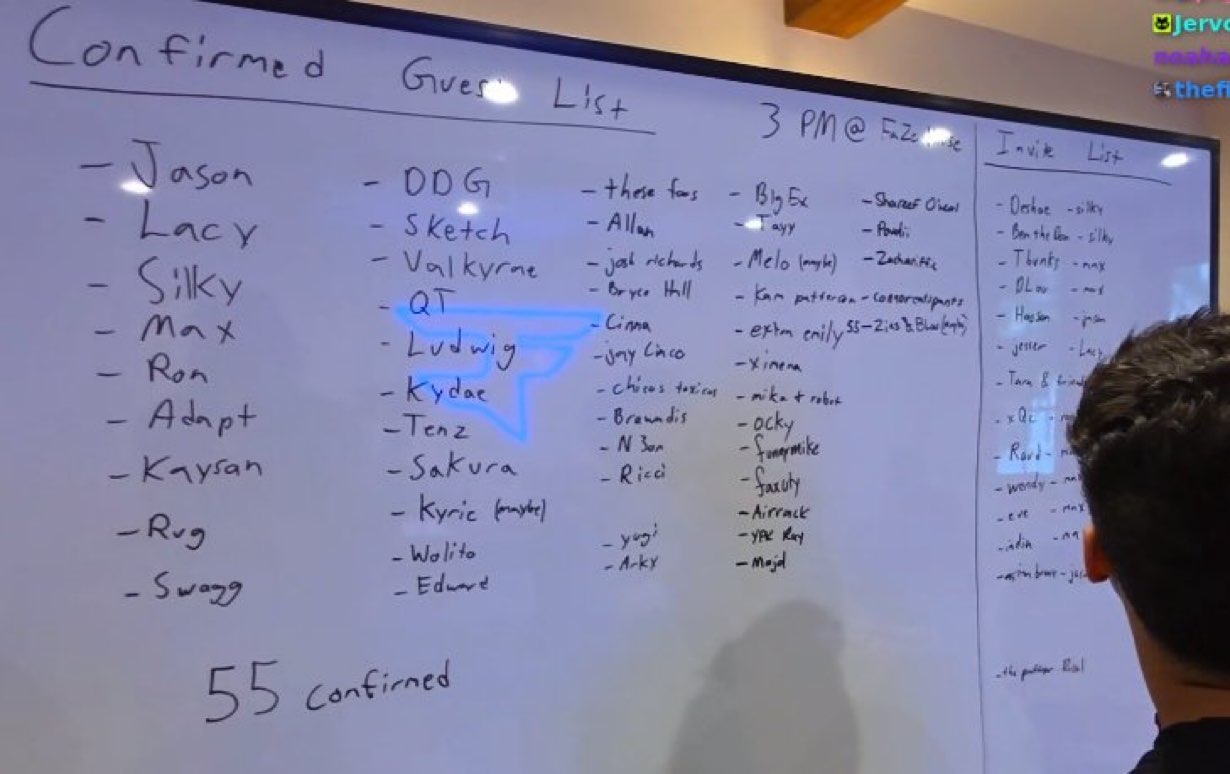 Confirmed Guest List
3 PM @ FaZe House
- Jason
- Lacy
- Silky
- Max
- Ron
- Adapt
- Kaysan
- Rug
- Swagg
- DDG
- Sketch
- Valkyrae
- QT
- Ludwig
- Kydae
- Tenz
- Sakura
- Kyric (maybe)
- Wolito
- Edward
- these fous
- Allan
- josh richards
- Bryce Hall
- Cinna
- jay Cinco
- chicas toxicas
- Brawadis
- N3on
- Ricci
- yugi
- Arky
- Big Ex
- Tayy
- Melo (maybe)
- Kam patterson
- extra emily
- ximena
- mika + robot
- Ocky
- funnymike
- faxuty
- Airrack
- YPK Ray
- Majd
- Shareef O'neal
-
- Zackariffic
55 confirmed
Invite List
- Deshae - silky
- Ben the Don - silky
- Thunks - max
- DLow - max
- Hassan - jason
- jesser - Lacy
- Tara & friend
- xQc
-
- wendy
- eve - max
- adin
-
Jerv
noaha
thefi